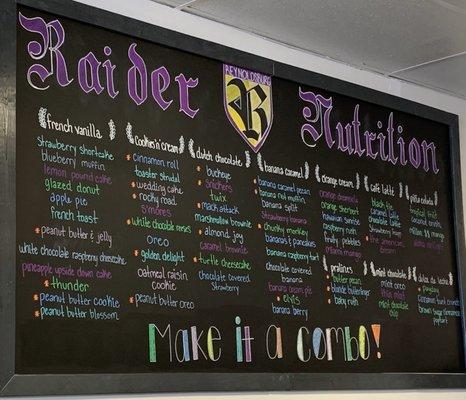 Raider Nutrition
REYNOLDSBURG
R
french vanilla
strawberry shortcake
blueberry muffin
lemon pound cake
glazed donut
apple pie
french toast
peanut butter & jelly
white chocolate raspberry cheesecake
pineapple upside down cake
thunder
peanut butter cookie
peanut butter blossom
Cookies 'n' cream
cinnamon roll
toaster strudal
wedding cake
rocky road
s'mores
white chocolate
oreo
golden delight
oatmeal raisin
cookie
peanut butter oreo
dutch chocolate
buckeye
snickers
twix
mack attack
marshmallow brownie
almond joy
caramel brownie
turtle cheesecake
chocolate covered
strawberry
banana caramel
banana caramel pecan
banana nut muffin
banana split
strawberry banana
chunky monkey
bananas & pancakes
banana raspberry tart
chocolate covered
banana
banana cream pie
elvis
banana berry
orange cream
orange dreamsicle
orange sherbet
hawaiian sunrise
raspberry rush
fruity pebbles
miami mango
pralines
butter pecan
blondie butterfinger
baby ruth
café latte
black tie
caramel latte
chocolate
strawberry
the americano
mint chocolate
mint oreo
thin mint
mint chocolate
chip
piña colada
tropical fruit
coconut
million $$
dulce de leche
payday
cinnamon toast crunch
brown sugar cinnamon
poptart
Make it a combo!